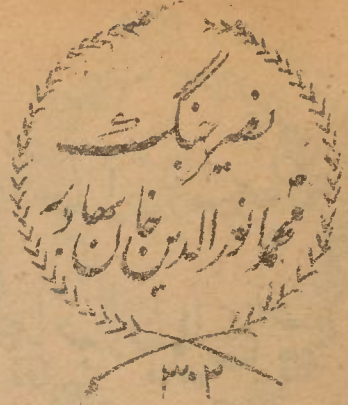 نصیر جنگ
محمد نور الدین خان بہادر
۳۰۲